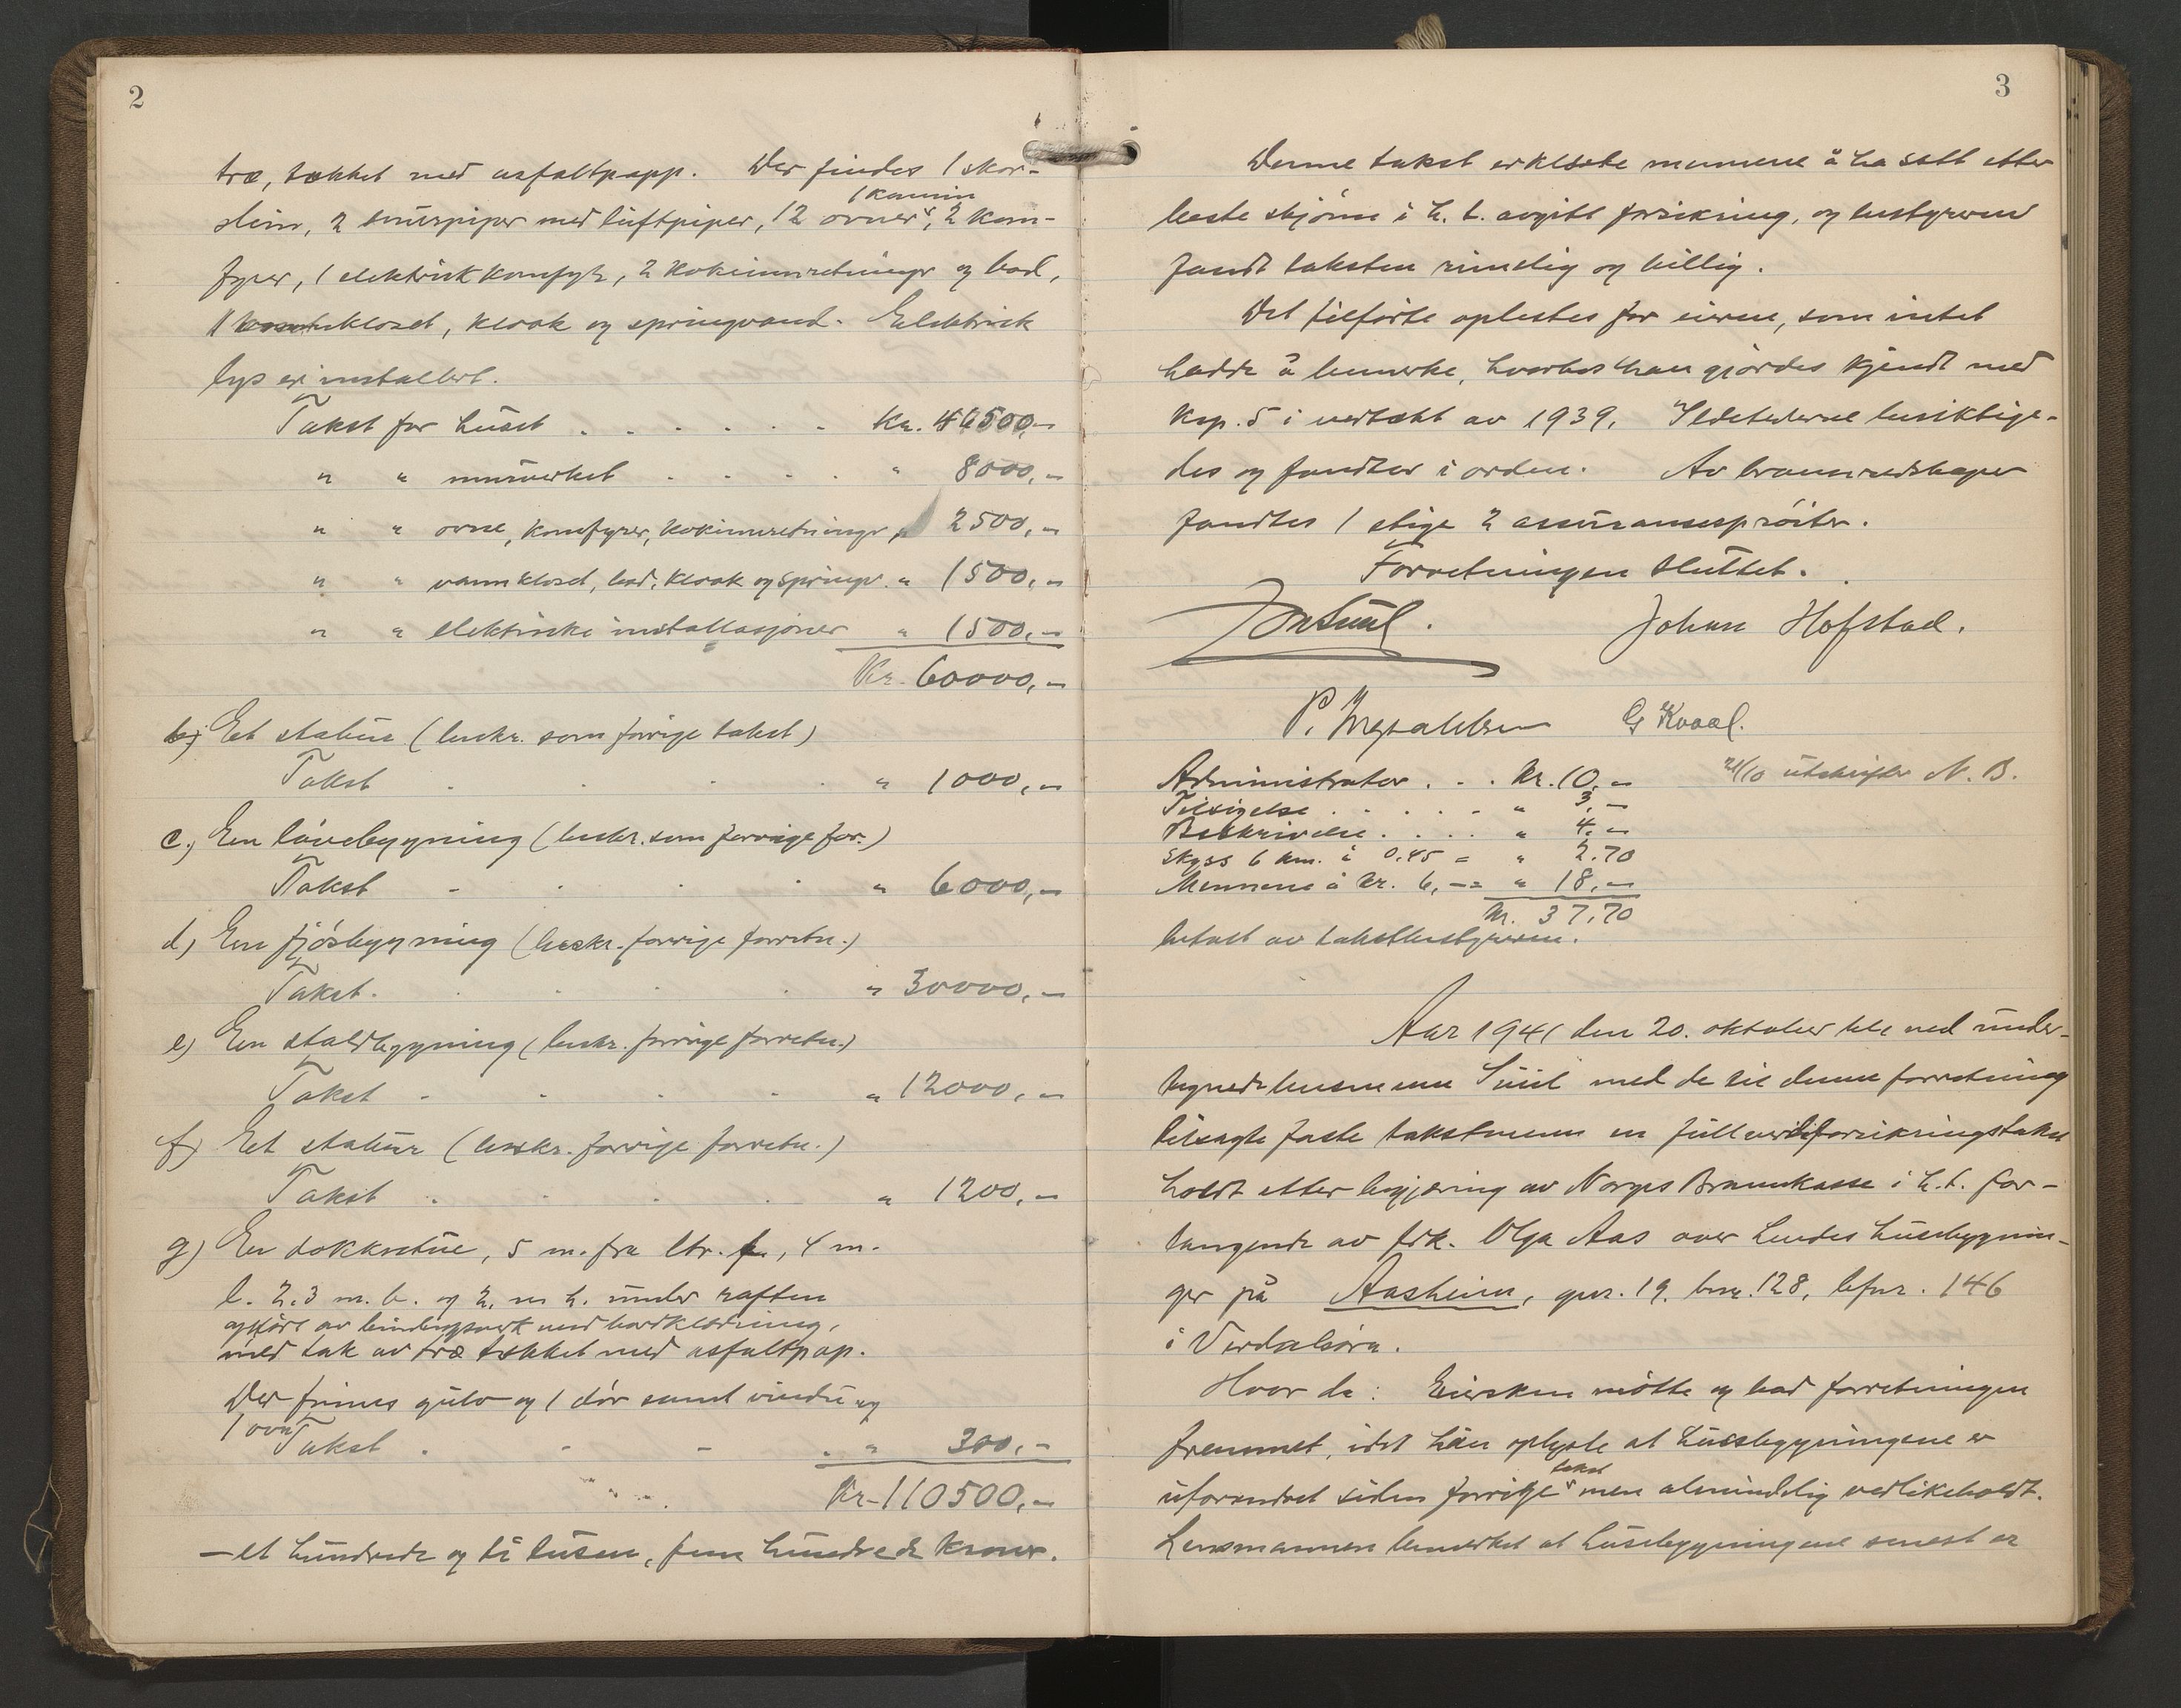 2
træ, tækket med asfaltpapp. Der findes 1 skor-
1 kamin
stein, 2 muurpiper med luftpiper, 12 ovner, 2 kom-
fyrer, 1 elektrisk komfyr, 2 kokeinnretninger og bad,
1 vannkloset, kloak og springvand. Elektrisk
lys er installert.
Takst for huset . . . . . . Kr. 46500,-
" " murverket . . . . " 8000,-
" " ovne, komfyrer, kokeinnretninger " 2500,-
" " vannkloset, bad, kloak og springv. " 1500,-
" " elektriske installasjoner " 1500,-
Kr. 60000,-
b) Et stabur (beskr. som forrige takst)
Takst . . . . " 1000,-
c) En låvebygning (beskr. som forrige for.)
Takst . . . . " 6000,-
d) En fjøsbygning (beskr. forrige forretn.)
Takst . . . . " 30000,-
e) En staldbygning (beskr. forrige forretn.)
Takst . . . . " 12000,-
f) Et stabur (beskr. forrige forretn.)
Takst . . . . " 1200,-
g) En dokkestue, 5 m. fra ltr. f., 4 m.
l. 2,3 m. b. og 2, m h. under raften
opført av bindingsverk med bordklædning,
med tak av træ tækket med asfaltpap.
Der finnes gulv og 1 dør samt vindu og
1 ovn
Takst . . . . " 300,-
Kr. 110500,-
- et hundrede og ti tusen, fem hundrede kroner.
3
Denne takst erklærte mennene å ha satt etter
beste skjønn i h. t. avgitt forsikring, og bestyreren
fandt taksten rimelig og billig.
Det tilførte oplestes for eieren, som intet
hadde å bemerke, hvorhos han gjordes kjendt med
kap. 5 i vedtekt av 1939. Ildstederne besiktige-
des og fandtes i orden. Av brannredskaper
fandtes 1 stige 2 assuransesprøiter.
Forretningen sluttet.
Suul. Johan Hofstad.
P. G Kvaal.
Administrator . . . Kr. 10,- 21/10 utskrifter N. B.
Tilsigelse . . . . . " 3,-
Beskrivelse . . . . " 4,-
Skyss 6 km. à 0.45 = " 2.70
Mennene à kr. 6,- = " 18,-
Kr. 37,70
betalt av takstbestyreren.
Aar 1941 den 20. oktober ble ved under-
tegnede lensmann Suul med de til denne forretning
tilsagte faste takstmenn en fullverdiforsikringstakst
holdt etter begjæring av Norges Brannkasse i h. t. for-
langende av frk. Olga Aas over hendes husebygnin-
ger på Aasheim, gnr. 19. bnr. 128, lfnr. 146
i Verdalsøra.
Hvor da: Eiersken møtte og bad forretningen
fremmet, idet hun oplyste at husebygningene er
takst
uforandret siden forrige men almindelig vedlikeholdt.
Lensmannen bemerket at husebygningene senest er